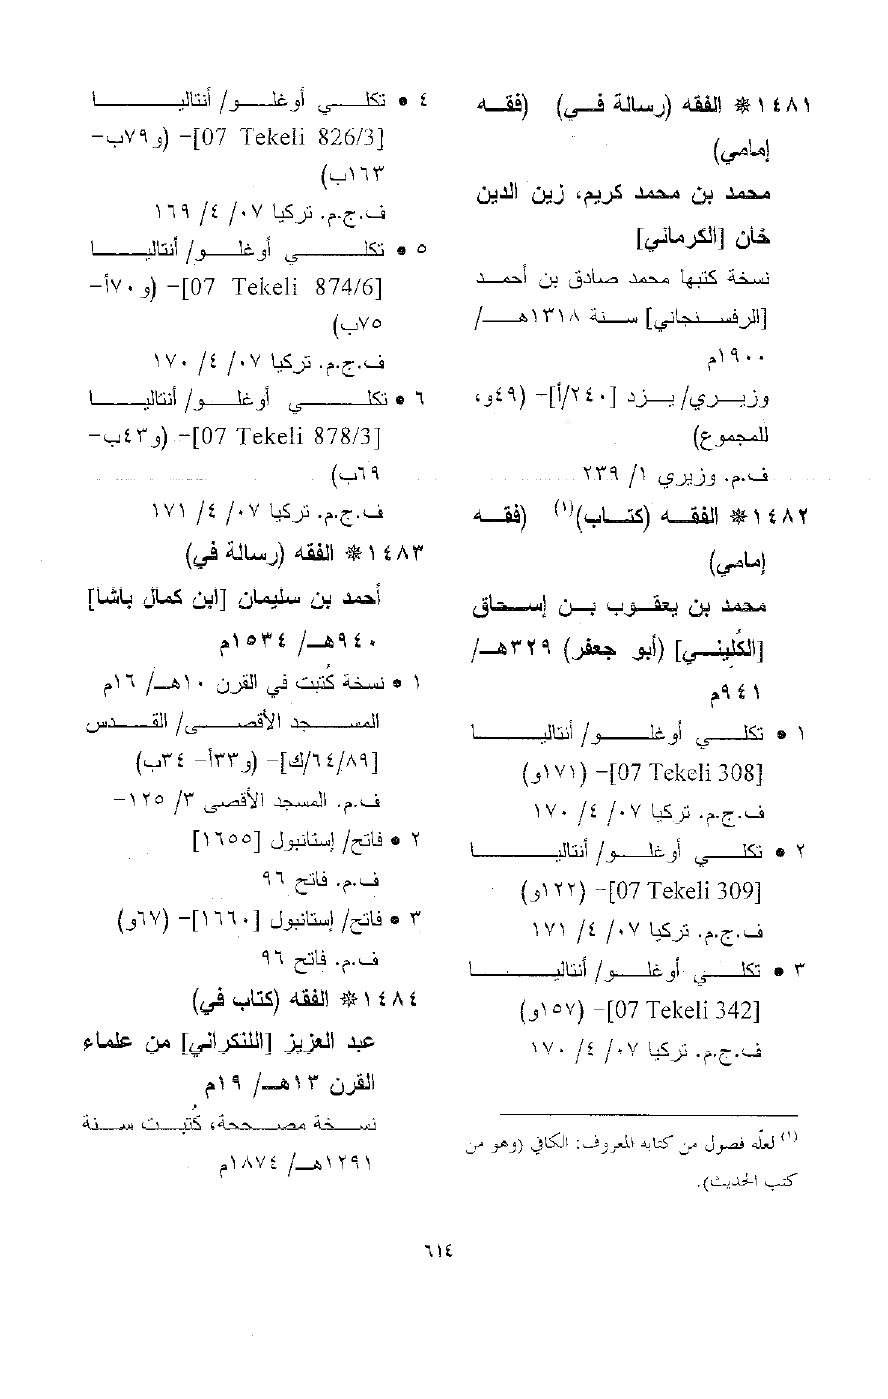 ١٤٨١ * الفقه (رسالة في) (فقه
إمامي)
محمد بن محمد كريم، زين الدين
خان [الكرماني]
نسخة كتبها محمد صادق بن أحمد
[الرفسنجاني] سنة ١٣١٨هـ/
١٩٠٠م
وزيري/ يزد [٢٤٠/أ]- (٤٩و،
للمجموع)
ف.م. وزيري ١/ ٢٣٩
١٤٨٢ * الفقه (كتاب)(١) (فقه
إمامي)
محمد بن يعقوب بن إسحاق
[الكُليني] (أبو جعفر) ٣٢٩هـ/
٩٤١م
١ • تكلي أوغلو/ أنتاليا
[07 Tekeli 308]- (١٧١و)
ف.ج.م. تركيا ٠٧/ ٤/ ١٧٠
٢ • تكلي أوغلو/ أنتاليا
[07 Tekeli 309]- (١٢٢و)
ف.ج.م. تركيا ٠٧/ ٤/ ١٧١
٣ • تكلي أوغلو/ أنتاليا
[07 Tekeli 342]- (١٥٧و)
ف.ج.م. تركيا ٠٧/ ٤/ ١٧٠
(١) لعلّه فصول من كتابه المعروف: الكافي (وهو من
كتب الحديث).
٤ • تكلي أوغلو/ أنتاليا
[07 Tekeli 826/3]- (و٧٩ب-
١٦٣ب)
ف.ج.م. تركيا ٠٧/ ٤/ ١٦٩
٥ • تكلي أوغلو/ أنتاليا
[07 Tekeli 874/6]- (و٧٠أ-
٧٥ب)
ف.ج.م. تركيا ٠٧/ ٤/ ١٧٠
٦ • تكلي أوغلو/ أنتاليا
[07 Tekeli 878/3]- (و٤٣ب-
٦٩ب)
ف.ج.م. تركيا ٠٧/ ٤/ ١٧١
١٤٨٣ * الفقه (رسالة في)
أحمد بن سليمان [ابن كمال باشا]
٩٤٠هـ/ ١٥٣٤م
١ • نسخة كُتبت في القرن ١٠هـ/ ١٦م
المسجد الأقصى/ القدس
[٨٩/٦٤/ك]- (و٣٣أ- ٣٤ب)
ف.م. المسجد الأقصى ٣/ ١٢٥-
٢ • فاتح/ إستانبول [١٦٥٥]
ف.م. فاتح ٩٦
٣ • فاتح/ إستانبول [١٦٦٠]- (٦٧و)
ف.م. فاتح ٩٦
١٤٨٤ * الفقه (كتاب في)
عبد العزيز [اللنكراني] من علماء
القرن ١٣هـ/ ١٩م
نسخة مصححة، كُتبت سنة
١٢٩١هـ/ ١٨٧٤م
٦١٤